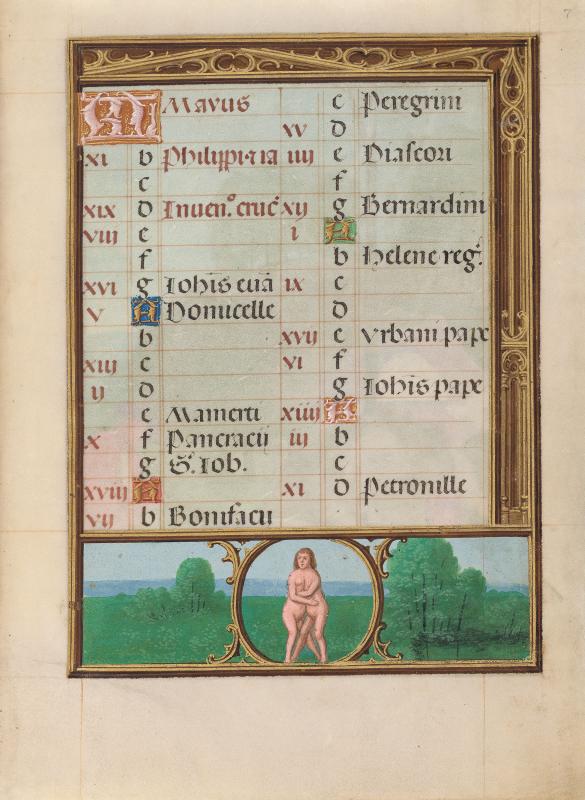 7
Mayus
xi b Philippi·et ia
c
xix d Inuen.° cruc̃
viij e
f
xvi g Iohis euã
v A Domicelle
b
xiij c
ij d
e Mamerti
x f Pancracij
g S. Iob.
xviij A
vij b Bonifacij
c Peregrini
xv d
iiij e Diascori
f
xij g Bernardini
i A
b Helene reg.
ix c
d
xvij e Vrbani pape
vi f
g Iohis pape
xiiij A
iij b
c
xi d Petronille